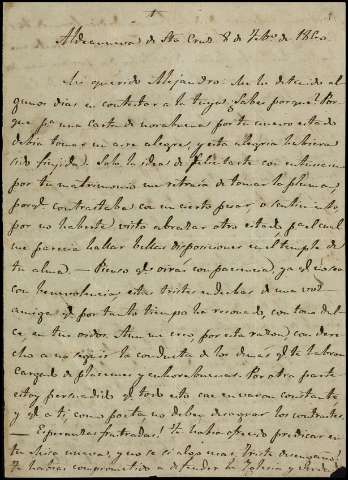 1
Aldeanueva de Sta Cruz 8 de Febo de 1860
Mi querido Alejandro: Me he detenido al
gunos dias en contestar a la tuya ¿Sabes porque? Por
que pa una carta de norabuena por tu nuevo estado
debia tomar un aire alegre, y esta alegria hubiera
sido fingida. Solo la idea de felicitarte con entusiasmo
por tu matrimonio me retraia de tomar la pluma,
porqe contrastaba con un cierto pesar, o sentimiento
por no haberte visto abrazar otro estado pa el cual
me parecia hallar bellas disposiciones en el temple de
tu alma. — Pienso qe oirás con paciencia, ya qe no sea
con benevolencia, estas tristes endechas de una voz
amiga qe por tanto tiempo ha resonado, con tono dul
ce, en tus oidos. Aun me creo, por esta razon con dere
cho a no seguir la conducta de los demas qe te habran
cargado de placemes y enhorabuenas. Por otra parte
estoy persuadido qe todo esto cae en varon constante,
y qe a ti, como poeta no deben desagradar los contrastes.
— Esperanzas frustradas! Te habia ofrecido predicar en
tu misa nueva, y no se si algo mas. Triste desengaño!
Te habias comprometido a defender la Iglesia y